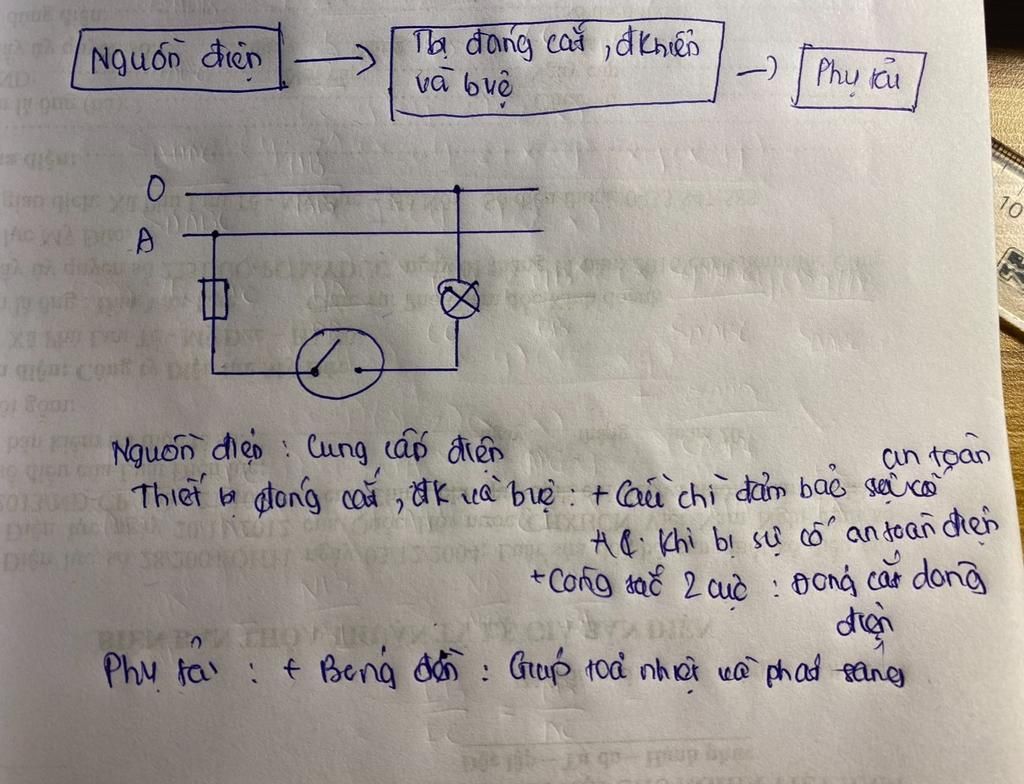 Nguồn điện → Tbị đóng cắt, đkhiển → Phụ tải
và bvệ
O
A
Nguồn điện : Cung cấp điện
an toàn
Thiết bị đóng cắt, đk và bvệ : + Cầu chì đảm bảo sự cố
khi bị sự cố an toàn điện
+ Công tắc 2 cực : Đóng cắt dòng
điện
Phụ tải : + Bóng đèn : Giúp toả nhiệt và phát sáng
10